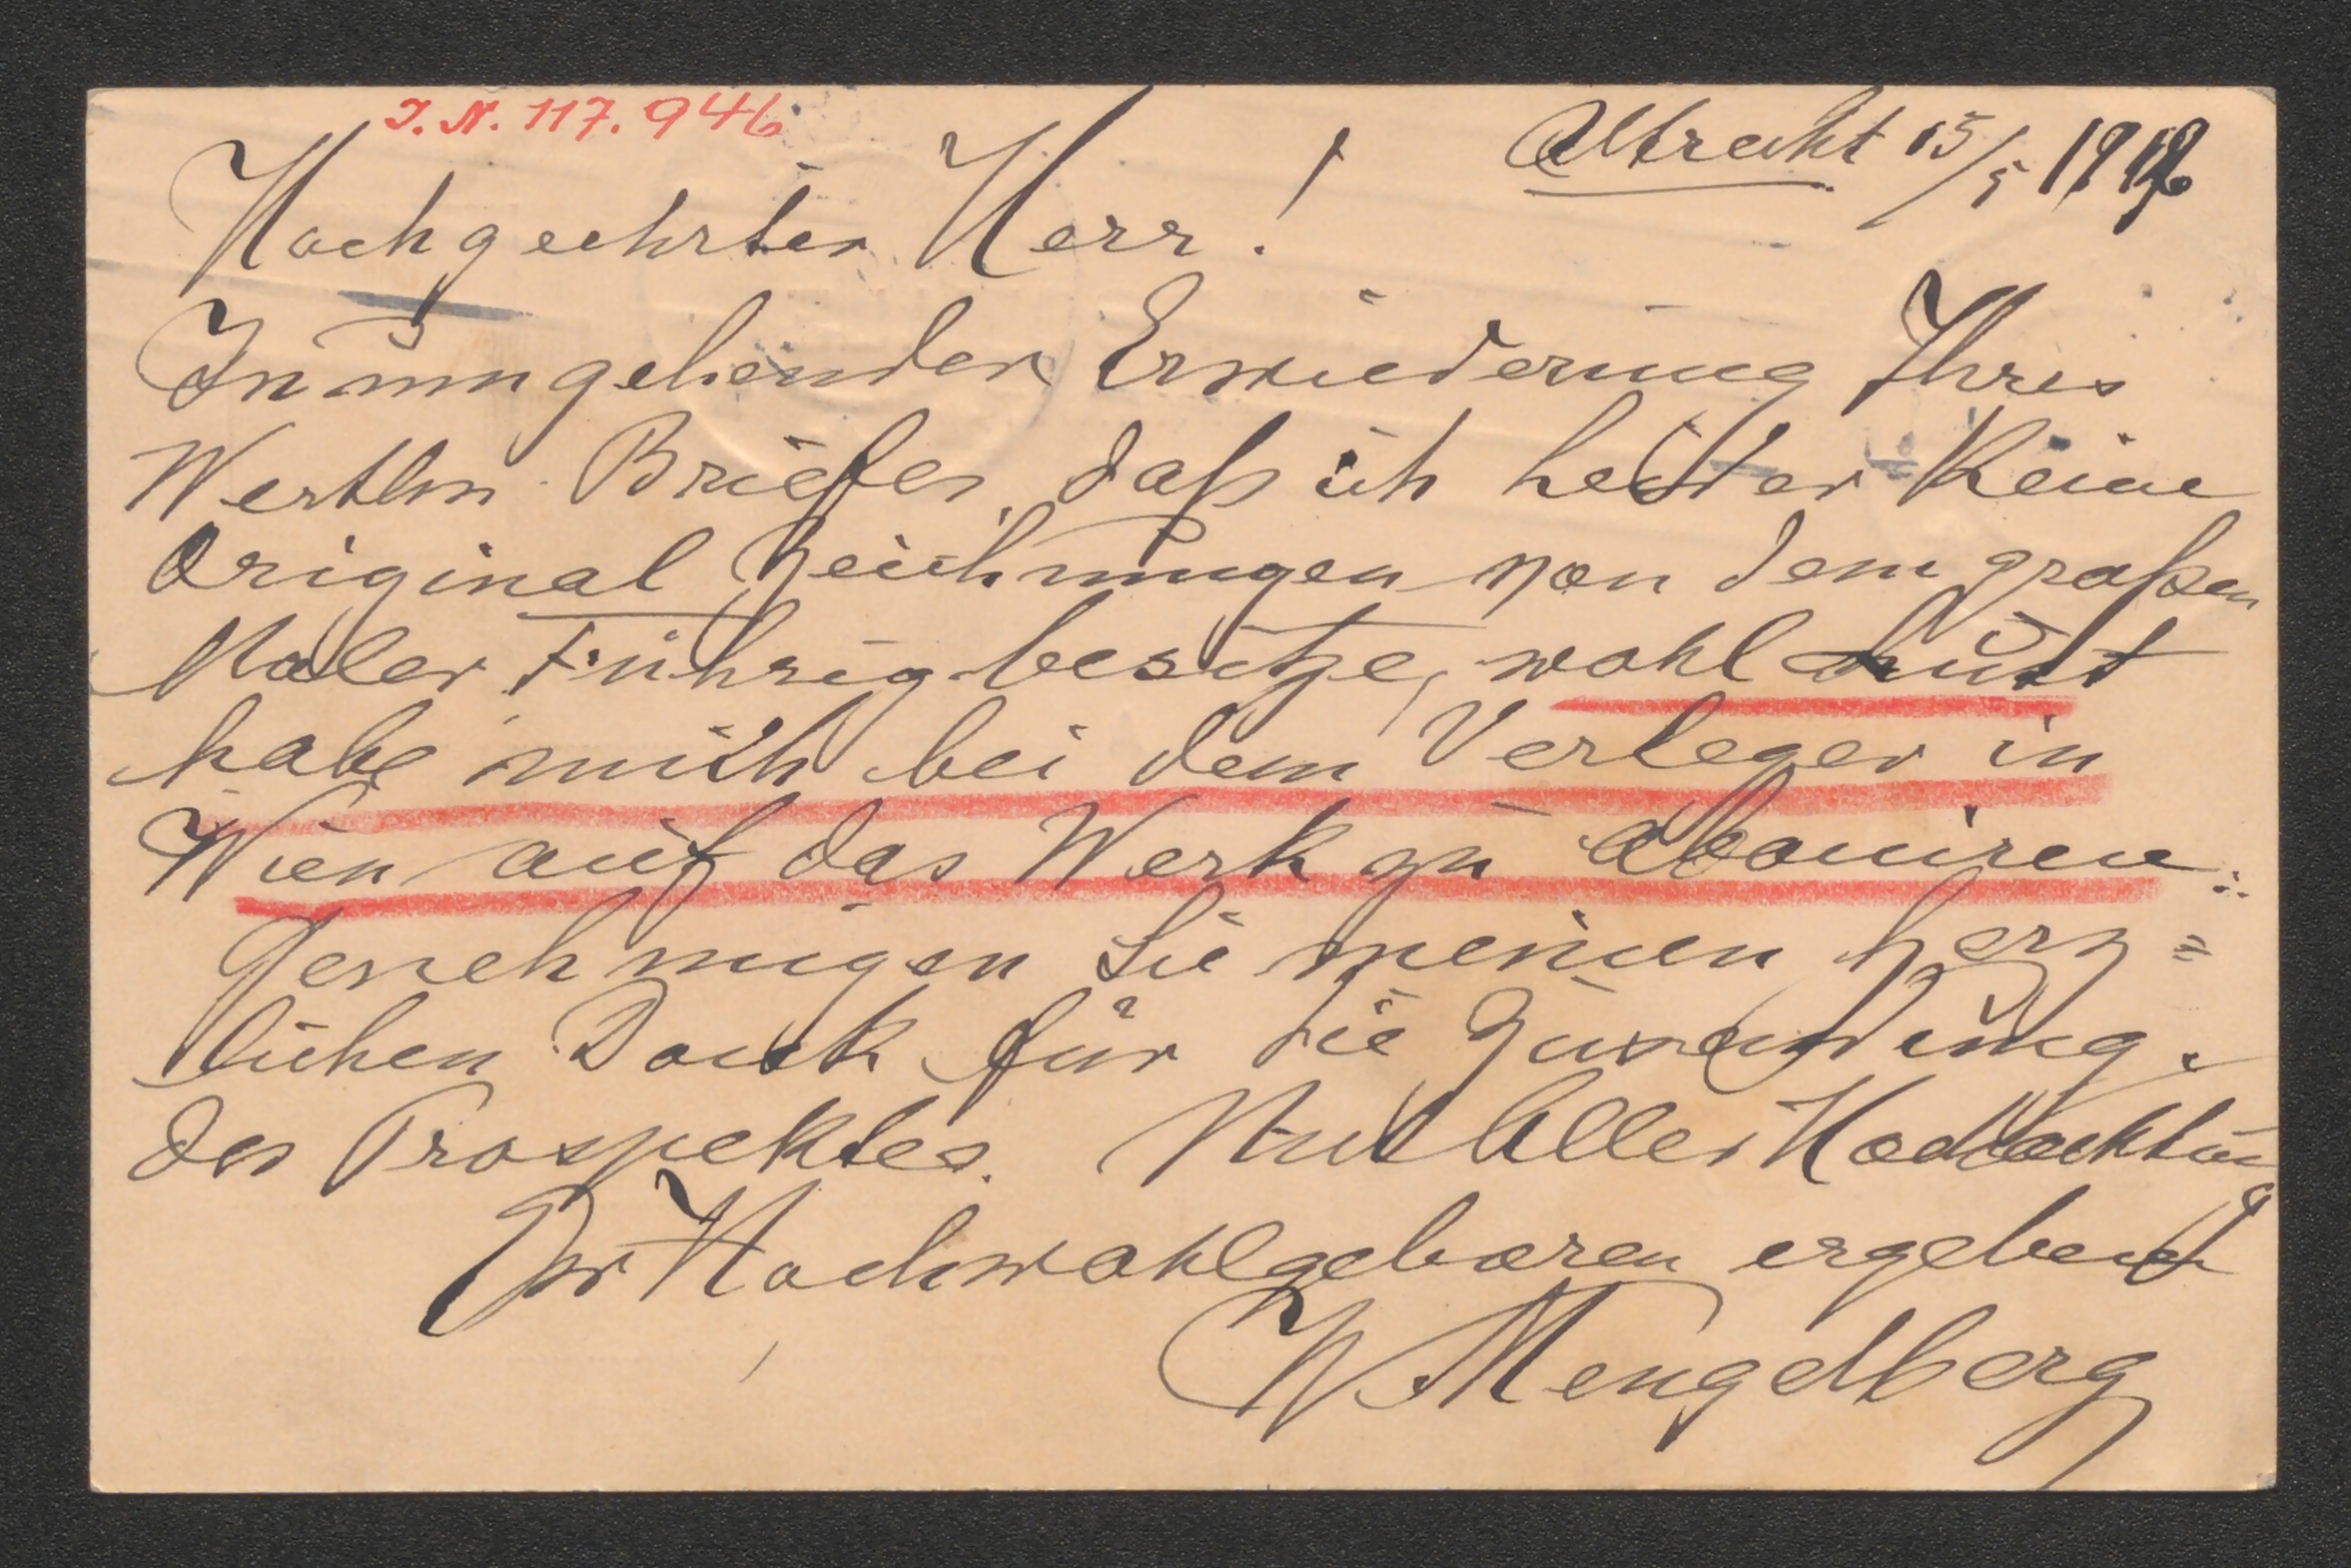 I.N. 117.946
Utrecht 15/5 1912
Hochgeehrter Herr!
In umgehender Erwiederung Ihres
Werthen Briefes, daß ich leider Keine
Original Zeichnungen von dem großen
Maler Führig besitze, wohl Lust
habe mich bei dem Verleger in
Wien auf das Werk zu aboniren.
Genehmigen Sie meinen herz=
lichen Dank für die Zusendung
des Prospektes. Mit Aller Hochachtung
Ew Hochwohlgeboren ergebenst
W Mengelberg